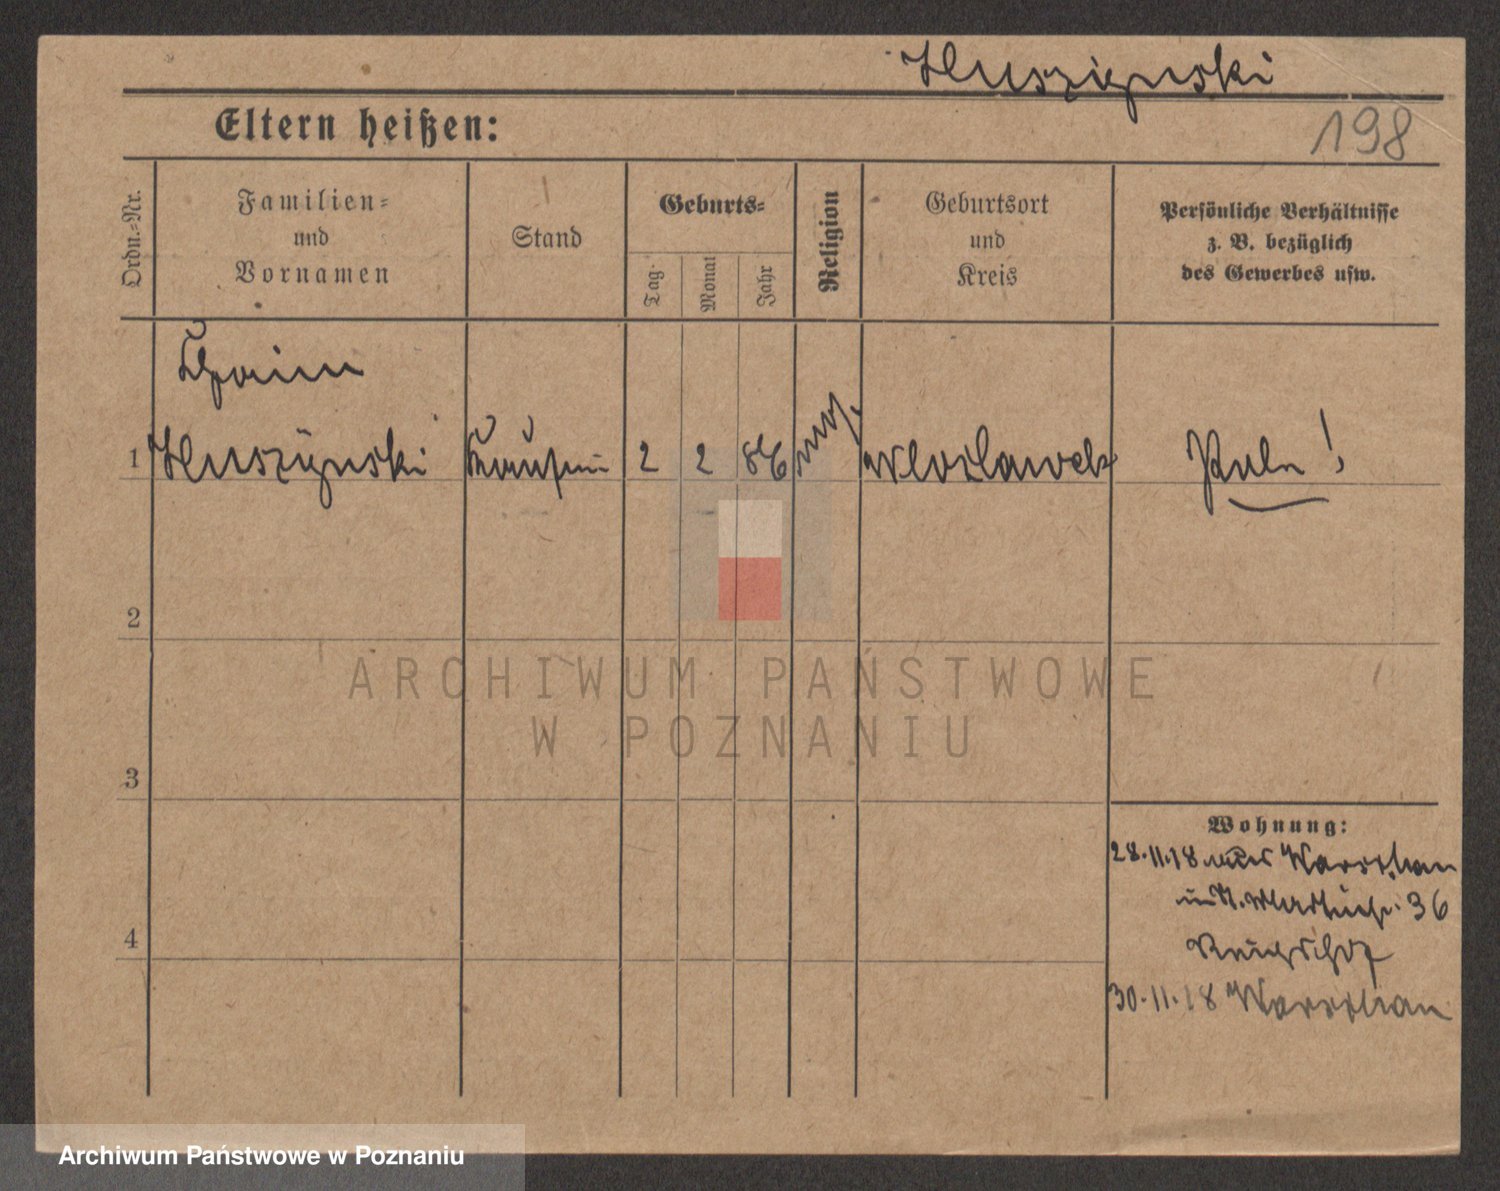 Kluszynski
198
Eltern heißen:
Ordn.-Nr.
Familien-
und
Vornamen
Stand
Geburts-
Tag
Monat
Jahr
Religion
Geburtsort
und
Kreis
Persönliche Verhältnisse
z. B. bezüglich
des Gewerbes usw.
Chaim
1 Kluszynski Kaufm 2 2 86 mos. Wloclawek Pole!
2
ARCHIWUM PAŃSTWOWE
W POZNANIU
3
Wohnung:
28.11.18 Warschau
36
4
30.11.18 Warschau
Archiwum Państwowe w Poznaniu